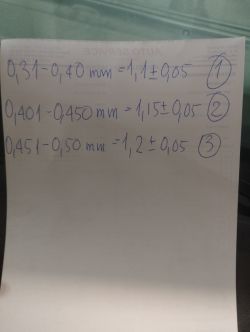 0,31-0,40 mm = 1,1 ± 0,05 1
0,401-0,450 mm = 1,15 ± 0,05 2
0,451-0,50 mm = 1,2 ± 0,05 3